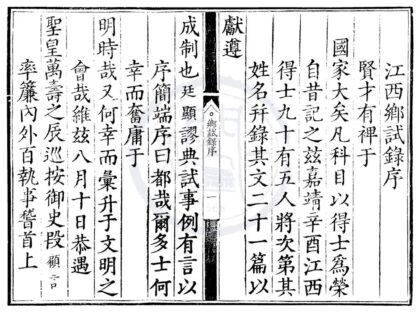 江西鄉試錄序
賢才有裨于
國家大矣凡科目以得士爲榮
自昔記之兹嘉靖辛酉江西
得士九十有五人將次第其
姓名幷錄其文二十一篇以
獻遵
鄉試錄序
成制也廷顯謬典試事例有言以
序簡端序曰都哉爾多士何
幸而奮庸于
明時哉又何幸而彙升于文明之
會哉維兹八月十日恭遇
聖皇萬壽之辰巡按御史段顧言
率簾內外百執事稽首上